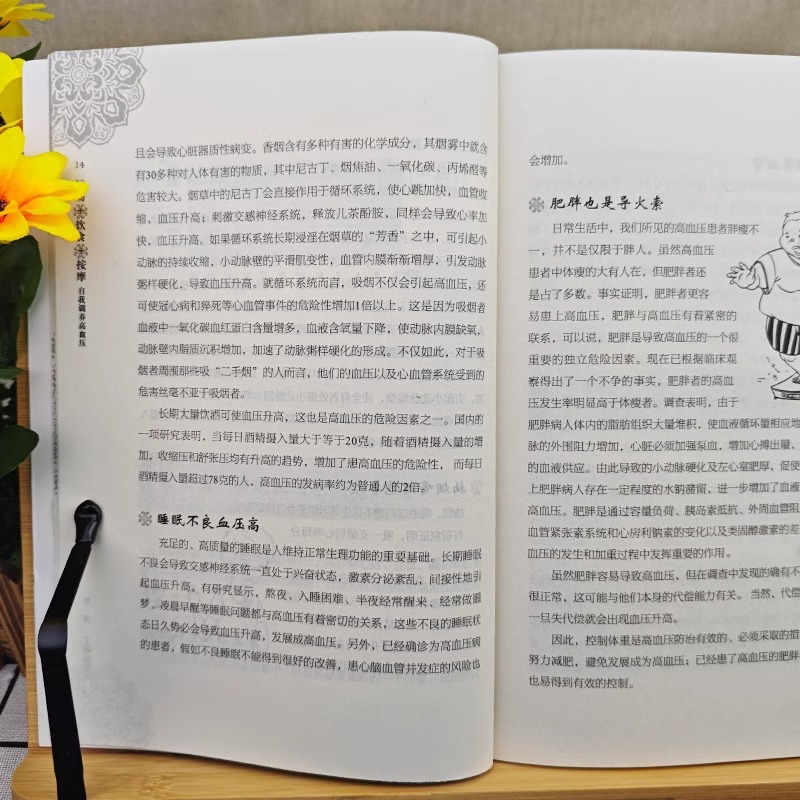 14
饮食
按摩
自我调养高血压
且会导致心脏器质性病变。香烟含有多种有害的化学成分，其烟雾中就含
有30多种对人体有害的物质，其中尼古丁、烟焦油、一氧化碳、丙烯醛等
危害较大。烟草中的尼古丁会直接作用于循环系统，使心跳加快，血管收
缩、血压升高；刺激交感神经系统，释放儿茶酚胺，同样会导致心率加
快，血压升高。如果循环系统长期浸淫在烟草的“芳香”之中，可引起小
动脉的持续收缩，小动脉壁的平滑肌变性，血管内膜渐渐增厚，引发动脉
粥样硬化、导致血压升高。就循环系统而言，吸烟不仅会引起高血压，还
可使冠心病和猝死等心血管事件的危险性增加1倍以上。这是因为吸烟者
血液中一氧化碳血红蛋白含量增多，血液含氧量下降，使动脉内膜缺氧，
动脉壁内脂质沉积增加，加速了动脉粥样硬化的形成。不仅如此，对于吸
烟者周围那些吸“二手烟”的人而言，他们的血压以及心血管系统受到的
危害丝毫不亚于吸烟者。
长期大量饮酒可使血压升高，这也是高血压的危险因素之一。国内的
一项研究表明，当每日酒精摄入量大于等于20克，随着酒精摄入量的增
加，收缩压和舒张压均有升高的趋势，增加了患高血压的危险性， 而每日
酒精摄入量超过78克的人，高血压的发病率约为普通人的2倍。
睡眠不良血压高
充足的、高质量的睡眠是人维持正常生理功能的重要基础。长期睡眠
不良会导致交感神经系统一直处于兴奋状态，激素分泌紊乱，间接性地引
起血压升高。有研究显示，熬夜、入睡困难、半夜经常醒来、经常做噩
梦、凌晨早醒等睡眠问题都与高血压有着密切的关系，这些不良的睡眠状
态日久势必会导致血压升高，发展成高血压。另外，已经确诊为高血压病
的患者，假如不良睡眠不能得到很好的改善，患心脑血管并发症的风险也
会增加。
肥胖也是导火索
日常生活中，我们所见的高血压患者胖瘦不
一，并不是仅限于胖人。虽然高血压
患者中体瘦的大有人在，但肥胖者还
是占了多数。事实证明，肥胖者更容
易患上高血压，肥胖与高血压有着紧密的
联系，可以说，肥胖是导致高血压的一个很
重要的独立危险因素。现在已根据临床观
察得出了一个不争的事实，肥胖者的高血
压发生率明显高于体瘦者。调查表明，由于
肥胖病人体内的脂肪组织大量堆积，使血液循环量相应地
脉的外围阻力增加，心脏必须加强泵血，增加心搏出量，
的血液供应。由此导致的小动脉硬化及左心室肥厚，促使
上肥胖病人存在一定程度的水钠潴留，进一步增加了血液
高血压。肥胖是通过容量负荷、胰岛素抵抗、外周血管阻
血管紧张素系统和心房利钠素的变化以及类固醇激素的差
血压的发生和加重过程中发挥重要的作用。
虽然肥胖容易导致高血压，但在调查中发现的确有不
很正常，这可能与他们本身的代偿能力有关。当然，代偿
一旦失代偿就会出现血压升高。
因此，控制体重是高血压防治有效的、必须采取的措
努力减肥，避免发展成为高血压；已经患了高血压的肥胖
也易得到有效的控制。